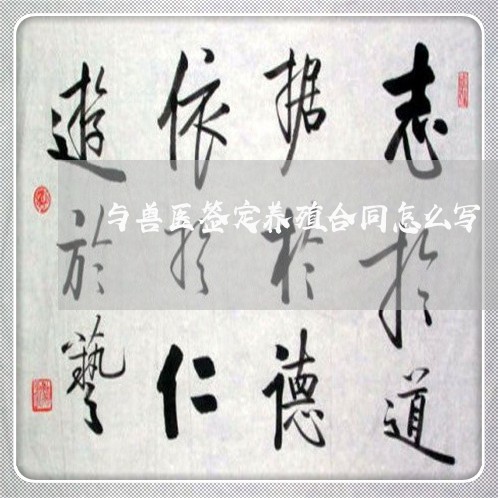 志於道
据於德
依於仁
遊於藝
与兽医签定养殖合同怎么写